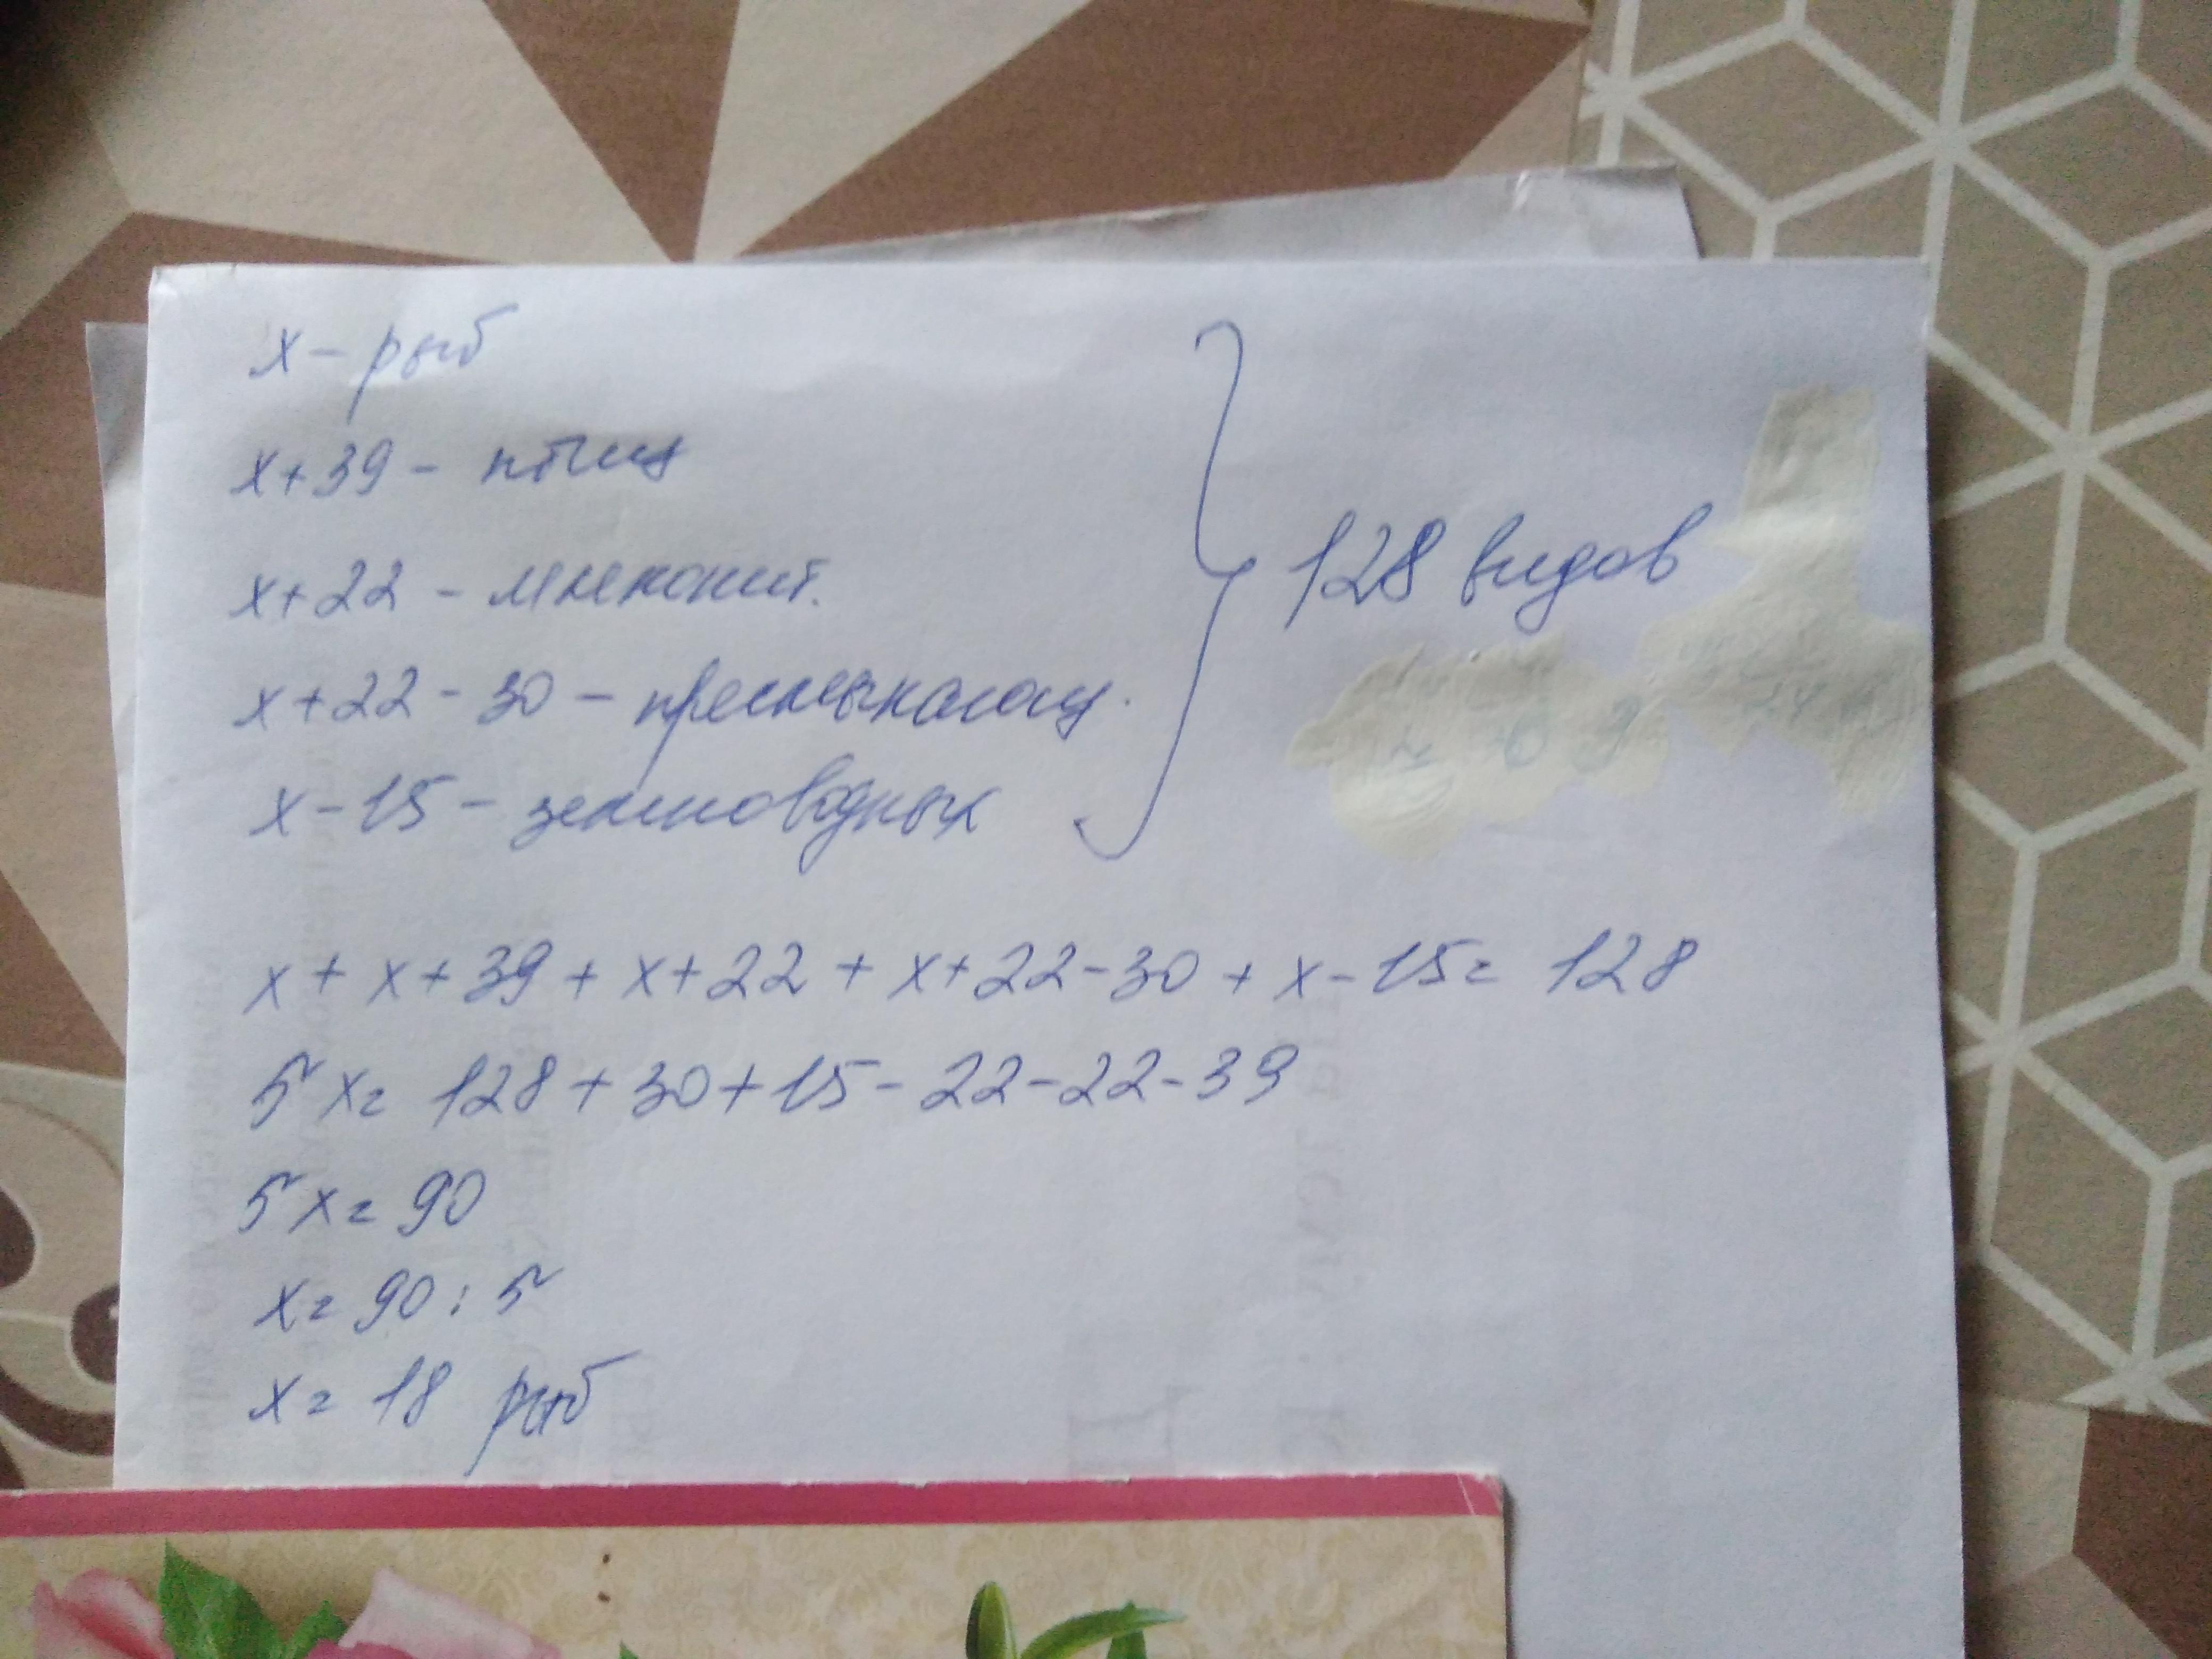 x - рыб
x + 39 - птиц
x + 22 - млекопит.
x + 22 - 30 - пресмыкающ.
x - 15 - земноводных
128 видов
x + x + 39 + x + 22 + x + 22 - 30 + x - 15 = 128
5x = 128 + 30 + 15 - 22 - 22 - 39
5x = 90
x = 90 : 5
x = 18 рыб